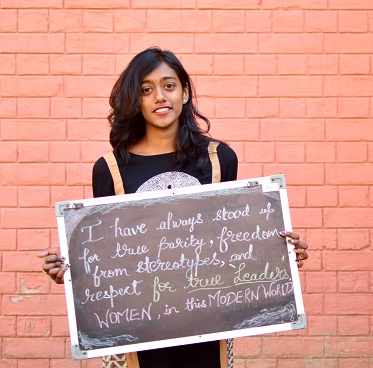 I have always stood up
for true parity, freedom
from stereotypes, and
respect for true Leaders,
WOMEN, in this MODERN WORLD